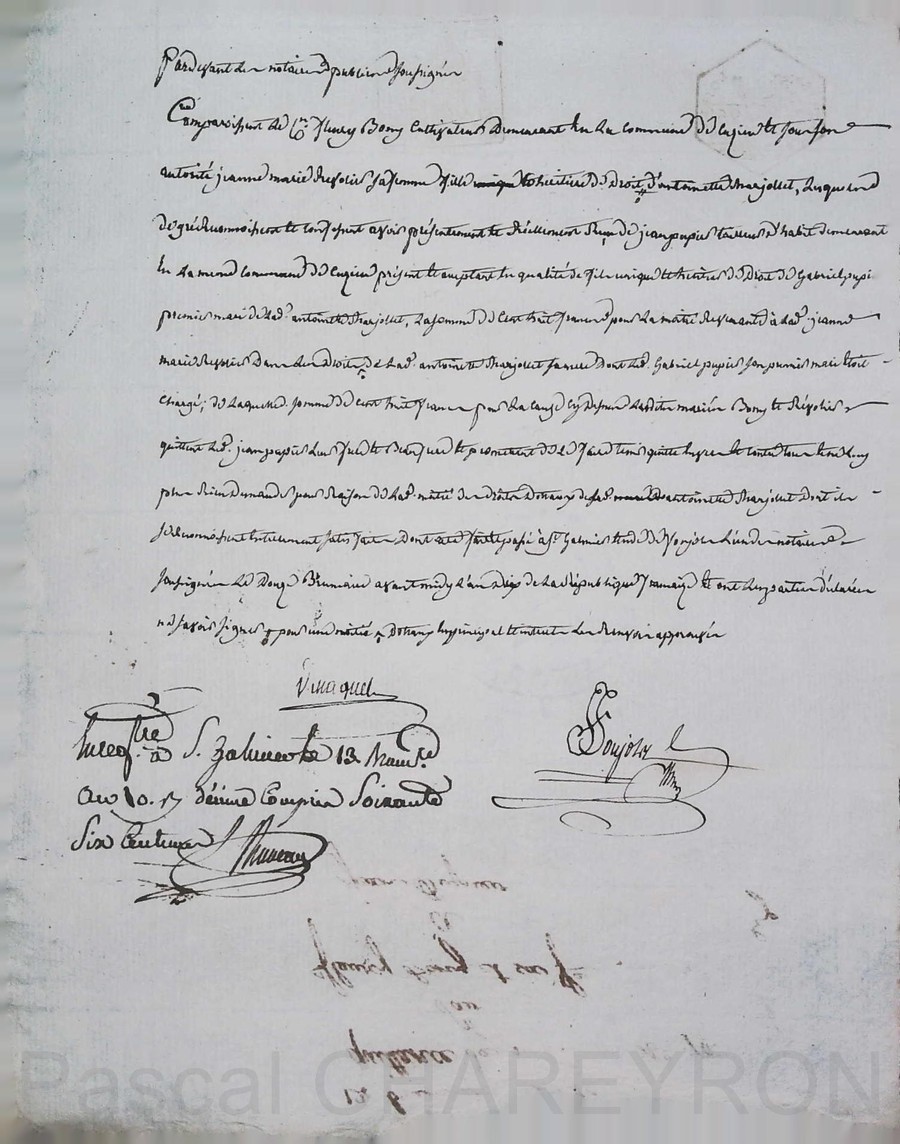 Pardevant les notaires publics soussignés
Comparoissent le Cn fleury Bony Cultivateur demeurant en la commune de Cuzieu et sous son
autorité jeanne marie Revolier sa femme fille et heritiere de Droit d'antoinette Marjollet, lesquels
de gré Reconnoissent et confessent avoir présentement et Réellement Reçu de jean pupier tailleur d'habit demeurant
en la meme Commune de Cuzieu présent et acceptant en qualité de fils unique et heritier de Droit de Gabriel pupier
premier mari de lad. antoinette Marjollet, la somme de Cent huit francs pour la moitié Revenante à lad. jeanne
marie Revolier Dans les Droits de lad. antoinette Marjollet sa mere Dont led. Gabriel pupier son premier mari etoit
chargé; de laquelle somme de cent huit francs pour la cause cy dessus lesdits mariés Bony et Révolier
quittent led. jean pupier et promettent de le faire tenir quitte envers et contre tous et ne luy
plus Rien Demander pour Raison de lad. moitié des droits Dotaux de lad. antoinette Marjollet Dont ils
se Reconnoissent entierement satisfaits Dont acte fait et passé à St Galmier etude de Ponjol l'un des notaires
soussignés le Douze Brumaire avant midy l'an Dix de la République française et ont les parties déclaré
ne savoir signer pour une moitié Dotaux en principal et interets les Renvois approuvés
Vinaquet
Ponjol
Enregtré à S. galmier le 13 Brumre
an 10. Reçu
Six Centimes
jean pupier
à
fleury bony et sa fe
au
quitance
12 B
Pascal CHAREYRON